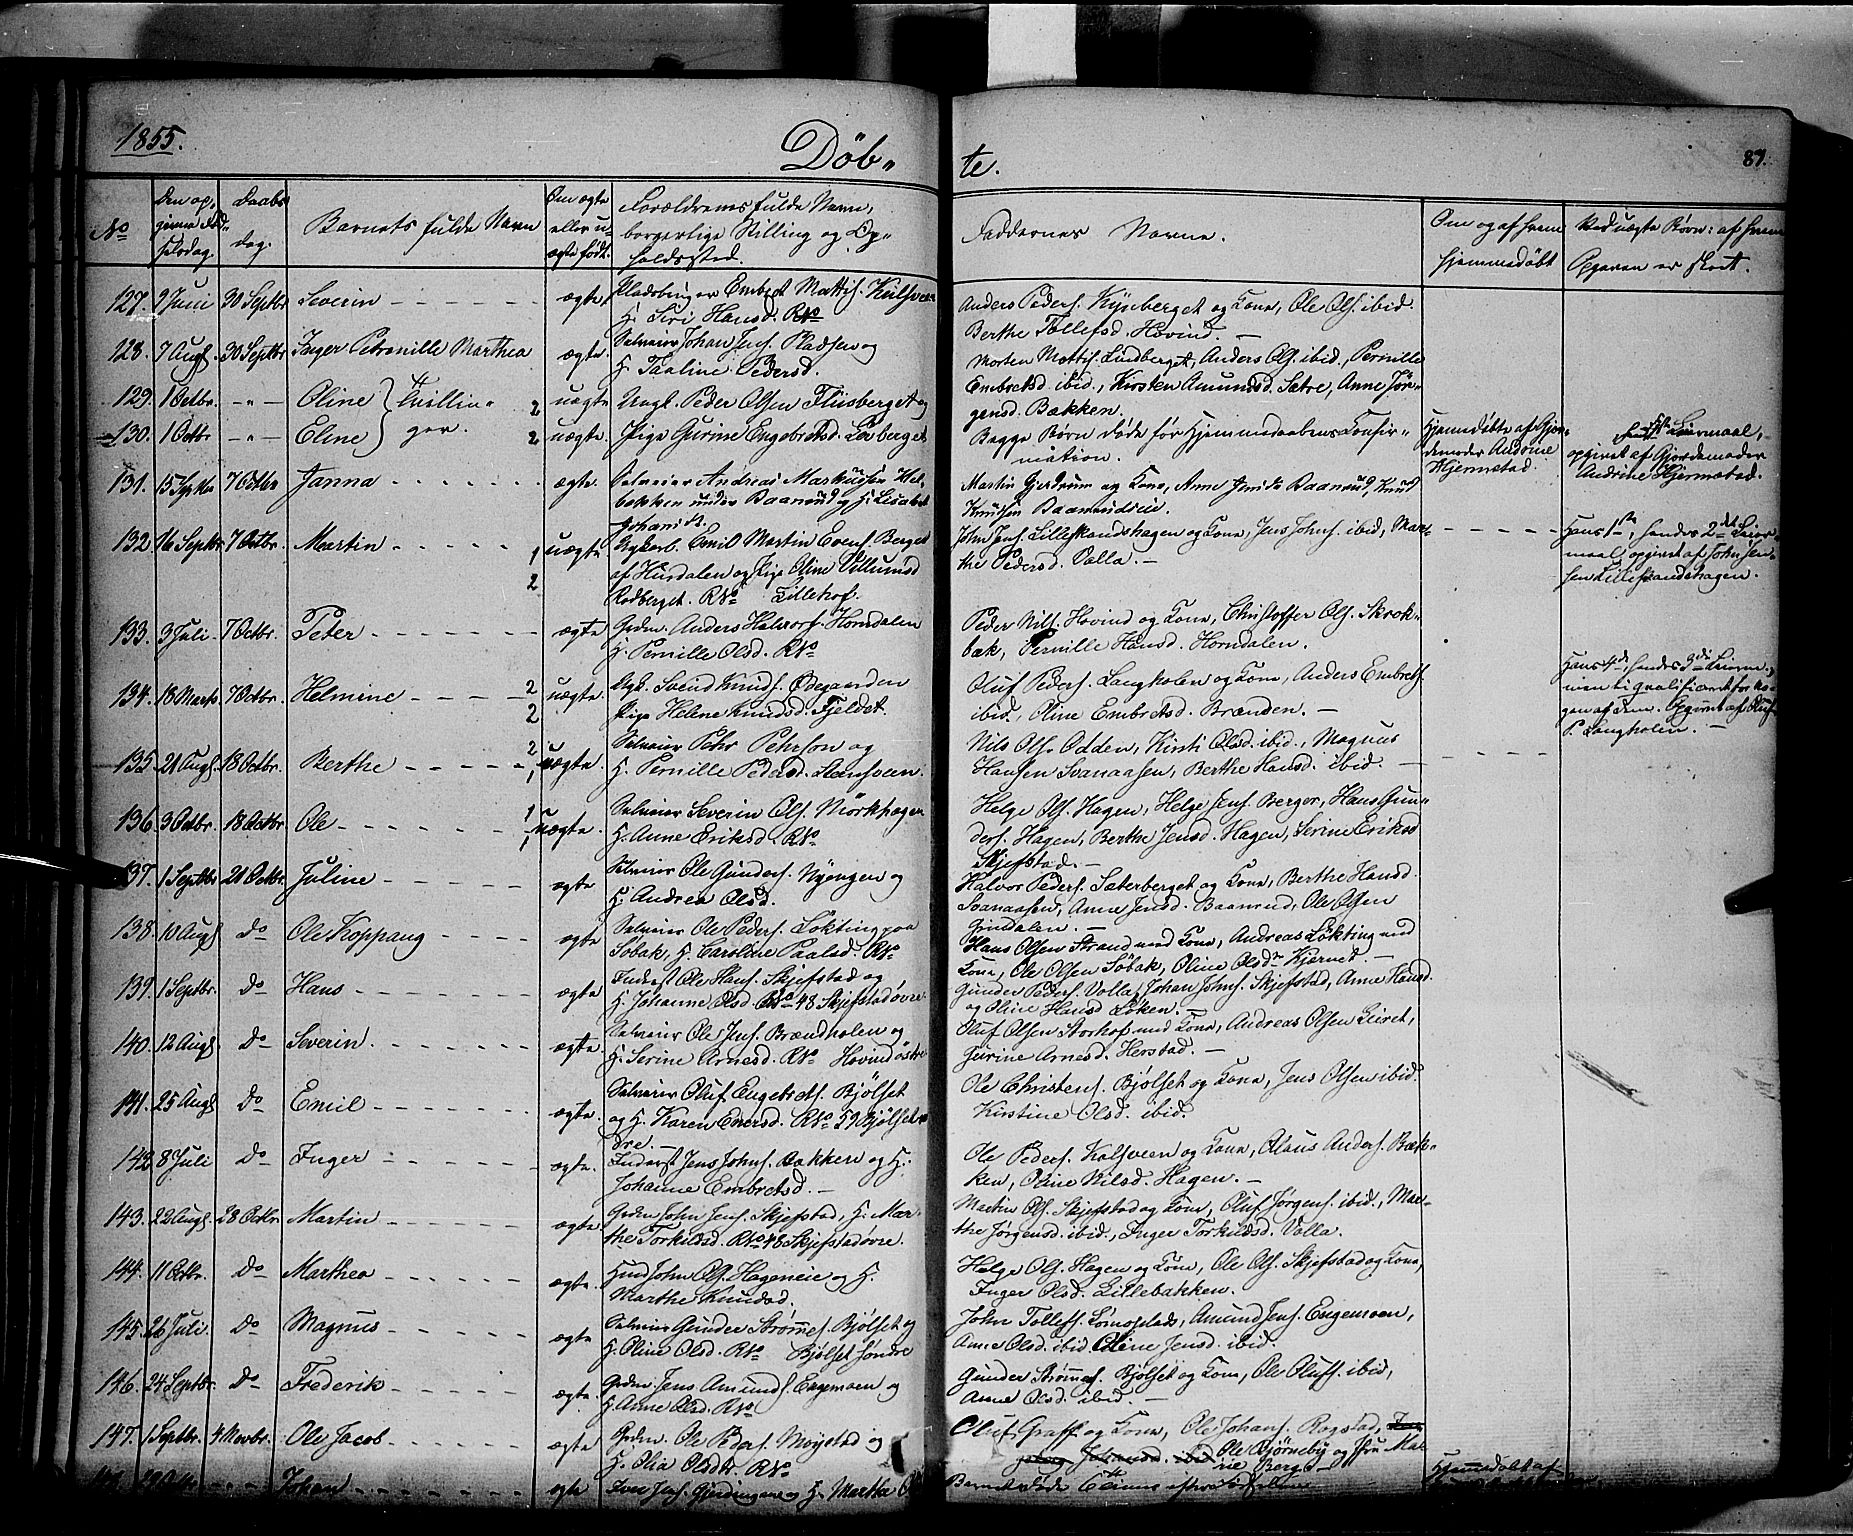 1855.
Döb-
te.
87.
No
Den op-
givne Fød-
selsdag.
Daabs
dag.
Barnets fulde Navn
Om ægte
eller u-
ægte født.
Forældrenes fulde Navne,
borgerlige Stilling og Op-
holdssted.
Faddernes Navne.
Om og af hvem
hjemmedøbt
Ved uægte Børn: af hvem
Opgaven er skeet.
127. 9 Juni 30 Septbr Severin ægte Embret Mattis.
H. Siri Hansd. No
Anders Peders. Kynberget og Kone, Ole Ols. ibid.
Berthe Tollefsd. Hovind.
128. 7 Augs. 30 Septbr Inger Petronille Marthea ægte. Selveier Johan Jens. Pladsen og
H. Pauline Pedersd.
Morten Mattis. Lindberget, Anders Ols. ibid, Pernille
Embretsd. ibid., Kirsten Amundsd. Sætre, Anne Jör-
gensd. Bækken.
129. 1 Octbr. -"- Oline } Tvillin- 2 uægte Ungk. Peder Olsen Fliisberget og
130. 1 Octbr -"- Eline } ger. 2 uægte. Pige Gurine Engebretsd. Loberget
Begge Börn döde för Hjemmedaabens Confir-
mation.
Hjemmdöbte af Gjor-
demoder Andrine
Hjermstad.
Leiermaal,
opgivet af Gjordemoder
Andrine Hjermstad.
131. 15 Septbr 7 Octbr Janna ægte. Selveier Andreas Markussen Hel-
bekken under Baanrud og H. Lisabet
Johansd.
Martin Gjerdrum og Kone, Anne Baanrud, Knud
Knudsen Baanrudeie.
132 16 Septbr 7 Octbr. Martin 1 uægte Ungkarl. Emil Martin Evens. Berget
2 af Hurdalen og Pige Oline Villumsd
Rødberget. No Lillehof.
John Jens. Lilleskandshagen og Kone, Jens Johns. ibid, Mar-
the Pedersd. Volla.
Hans 1ste, hendes 2det Leier-
maal, opgivet af John Jen-
sen Lilleskandshagen.
133. 3 Juli 7 Octbr. Peter ægte Grdm. Anders Halvors. Horndalen
H. Pernille Olsd. No
Peder Nils. Hovind og Kone, Christoffer Ols. Skrok-
bæk, Pernille Hansd. Horndalen.
134. 18 Marts 7 Octbr. Helmine 2 uægte. Ungk. Svend Knuds. Ødegaarden
2 Pige Helene Knudsd. Fjeldet.
Oluf Peders. Langholen og Kone, Anders Embrets.
ibid., Oline Embretsd. Brænden.
Hans 4de, hendes 3die Leierm.,
men ei qualificeret for no-
gen af dem. Opgivet af Oluf
P. Langholen.
135 21 Augs. 18 Octbr. Berthe 2 uægte. Selveier Pehr Pehrson og
1 H. Pernille Pedersd. Stensveen.
Nils Ols. Odden, Kirsti Olsd. ibid., Magnus
Hansen Svenaasen, Berthe Hansd. ibid.
136 3 Octbr. 18 Octbr Ole 1 uægte. Selveier Severin Ols. Mörkhagen
1 H. Anne Eriksd. No
Helge Ols. Hagen, Helge Jens. Berger, Hans Gun-
ders. Hagen, Berthe Jensd. Hagen, Serine Eriksd
Skjefstad.
137. 1 Septbr 21 Octbr. Juline ægte Selveier Ole Gunders. Nyengen og
H. Andrea Olsd.
Halvor Peders. Sæterberget og Kone, Berthe Hansd.
Svenaasen, Anne Jensd. Baanrud, Ole Olsen
Gjüdalen.
138. 10 Augs do Ole Koppang ægte Selveier Ole Peders. Lökting paa
Söbak, H. Caroline Paalsd. No
Hans Olsen Strand med Kone, Andreas Lökting med
Kone, Ole Olsen Söbak, Oline Olsdr Kjernd.
139. 1 Septbr. do Hans ægte Inderst Ole Hans. Skjefstad og
H. Johanne Olsd. No 48 Skjefstad øvre.
Gunder Peders. Volla, Johan Johns. Skjefstad, Anne Hansd.
og Oline Hansd. Löken.
140. 12 Augs do Severin. ægte Selveier Ole Jens. Brændholen og
H. Serine Arnesd. No Hovind østre
Oluf Olsen Storhof med Kone, Andreas Olsen Leiret,
Gurine Arnesd. Herstad.
141. 25 Augs do Emil ægte. Selveier Oluf Engebrets. Bjölset
og H. Karen Enersd. No 59 Bjölset n-
dre.
Ole Christens. Bjölset og Kone, Jens Olsen ibid.
Kirstine Olsd. ibid.
142 8 Juli do Inger ægte. Inderst Jens Johns. Bakken og H.
Johanne Embretsd.
Ole Peders. Kalsveen og Kone, Claus Anders. Bæk-
ken, Oline Nilsd. Hagen.
143. 22 Augs. 28 Octbr. Martin ægte Grdm John Jens. Skjefstad, H. Mar-
the Torkildsd. No 48 Skjefstad øvre.
Martin Ols. Skjefstad og Kone, Oluf Jörgens. ibid., Mar-
the Jörgensd. ibid., Inger Torkildsd. Volla.
144. 11 Octbr. do Marthea ægte. Husm John Ols. Hageneie og H.
Marthe Knudsd.
Helge Ols. Hagen og Kone, Ole Ols. Skjefstad og Kone,
Inger Olsd. Lillebakken.
145. 26 Juli. do Magnus ægte Selveier Gunder Strömes. Bjölset og
H. Oline Olsd. No Bjölset søndre
John Tollefs. Lömoplads, Amund Jens. Engemoen,
Anne Olsd. ibid Oline Jensd. ibid.
146. 24 Septbr. do Frederik ægte. Grdm. Jens Amunds. Engemoen og
H. Anne Olsd. No
Gunder Strömes. Bjölset og Kone, Ole Olufs. ibid,
Anne Olsd. ibid.
147. 1 Septbr. 4 Novbr. Ole Jacob ægte Grdm. Ole Peders. Möystad og
H. Olia Olsdtr. No
Oluf Graff og Kone, Ole Johans. Rogstad,
Johansd. ibid Ole Björneby og Fru Ma-
rie Berg.
Johan ægte Iver Jens. Gjerdingen og H. Martha
Barnet döde
Hjemmedöbt af